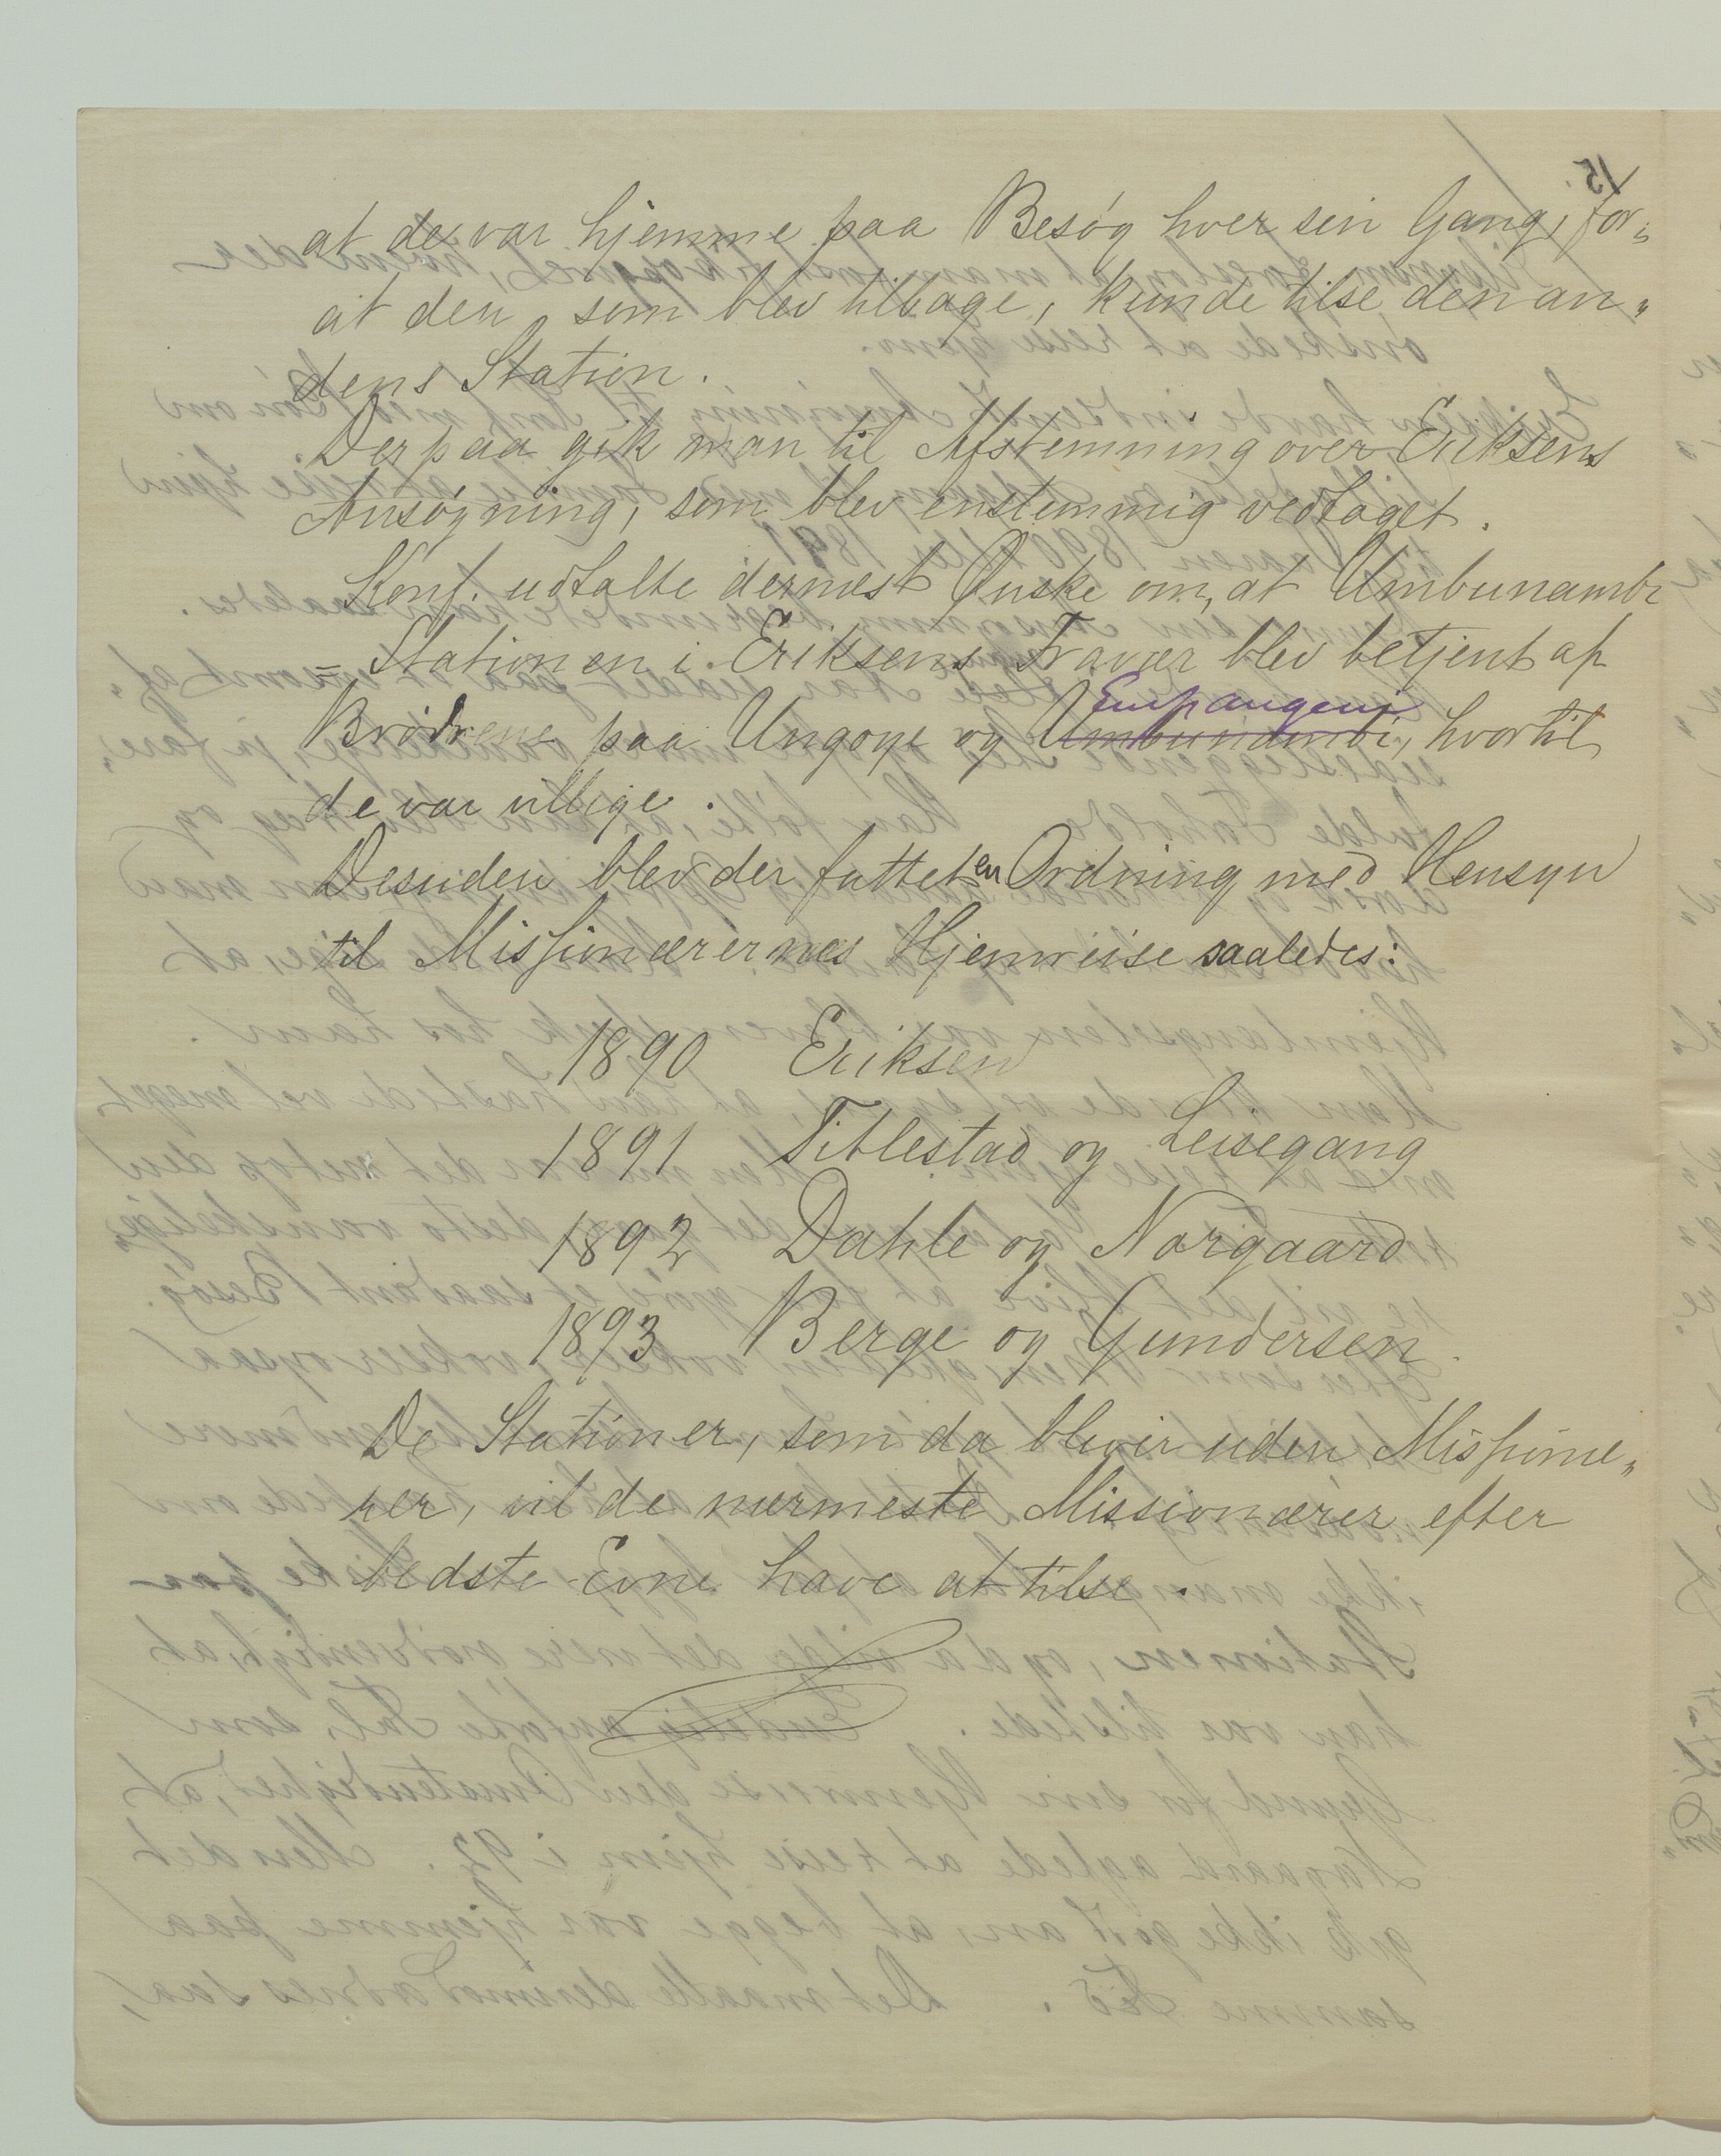 at de var hjemme paa Besøg hver sin Gang, for=
at den, som blev tilbage, kunde tilse den an„
dens Station.
Derpaa gik man til Afstemning over Eriksens
Ansøgning, som blev enstemmig vedtaget.
Konf. udtalte dernæst Ønske om, at Umbunambi
= Stationen i Eriksens Fravær blev betjent af
Empangeni
Brødrene paa Ungoye og Umbunambi, hvortil
de var villige.
Desuden blev der fattet en Ordning med Hensyn
til Missionærernes Hjemreise saaledes:
1890 Eriksen
1891 Titlestad og Leisegang
1892 Dahle og Norgaard
1893 Berge og Gundersen.
De Stationer, som da blever uden Missionæ„
rer, vil de nærmeste Missionærer efter
bedste Evne have at tilse.